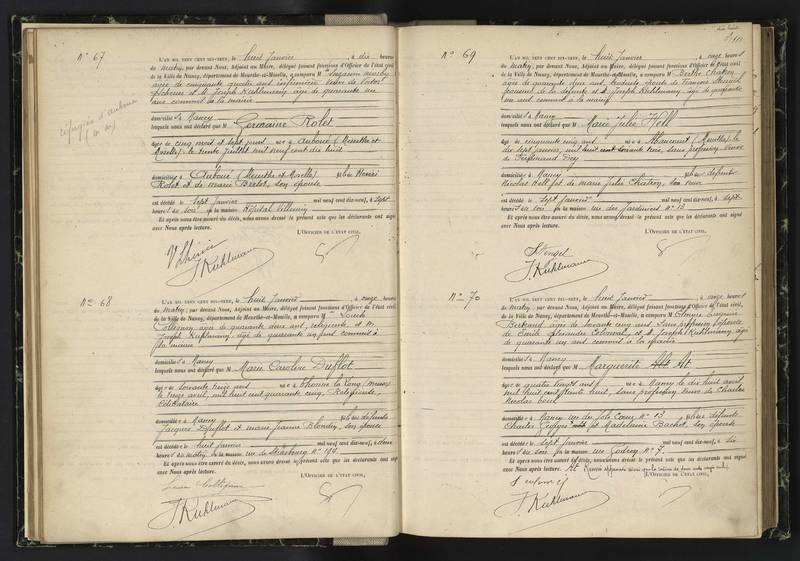 N° 67
L'AN MIL NEUF CENT DIX-NEUF, le huit Janvier, à dix heures
du matin, par devant Nous, Adjoint au Maire, délégué faisant fonctions d'Officier de l'état civil
de la Ville de Nancy, département de Meurthe-et-Moselle, a comparu M
âgée de cinquante quatre ans infirmière
et M. Joseph Kuhlmann, âgé de quarante un
ans commis à la mairie
domiciliés à Nancy
lesquels nous ont déclaré que M Germaine Rolet
âgée de cinq mois et sept jours née à Auboué (Meurthe et
Moselle) le trente juillet mil neuf cent dix huit
domiciliée à Auboué (Meurthe et Moselle) fille de Henri
Rolet et de Marie Bertot, son épouse
est décédée le sept Janvier mil neuf cent dix-neuf, à sept
heures du soir en la maison Hôpital Villemin
Et après nous être assuré du décès, nous avons dressé le présent acte que les déclarants ont signé
avec Nous après lecture.
L'OFFICIER DE L'ÉTAT CIVIL,
J. Kuhlmann
réfugiée d'Auboué
(M. M.)
N° 68
L'AN MIL NEUF CENT DIX-NEUF, le huit Janvier, à onze heures
du matin, par devant Nous, Adjoint au Maire, délégué faisant fonctions d'Officier de l'état civil
de la Ville de Nancy, département de Meurthe-et-Moselle, a comparu M Louise
Collignon, âgée de quarante deux ans, religieuse et M.
Joseph Kuhlmann, âgé de quarante un ans commis à
la mairie
domiciliés à Nancy
lesquels nous ont déclaré que M Marie Caroline Duflot
âgée de soixante treize ans née à Thonne la Long (Meuse)
le treize avril, mil huit cent quarante cinq, Religieuse,
Célibataire
domiciliée à Nancy fille de défunts
Jacques Duflot et Marie Jeanne Blondin, son épouse
est décédée le huit Janvier mil neuf cent dix-neuf, à deux
heures du matin en la maison rue de Strasbourg N° 194
Et après nous être assuré du décès, nous avons dressé le présent acte que les déclarants ont signé
avec Nous après lecture.
L'OFFICIER DE L'ÉTAT CIVIL,
Louise Collignon
J. Kuhlmann
N° 69
L'AN MIL NEUF CENT DIX-NEUF, le huit Janvier, à onze heures
du matin, par devant Nous, Adjoint au Maire, délégué faisant fonctions d'Officier de l'état civil
de la Ville de Nancy, département de Meurthe-et-Moselle, a comparu M Berthe Chatron
âgée de quarante deux ans épouse de François
de la défunte et M. Joseph Kuhlmann âgé de quarante
un ans commis à la mairie
domiciliés à Nancy
lesquels nous ont déclaré que M Marie Julie Holl
âgée de cinquante cinq ans née à (Meurthe) le
dix sept Janvier, mil huit cent soixante trois, sans profession, veuve
de Ferdinand Dey
domiciliée à Nancy fille de défunts
Nicolas Holl et de Marie Julie Chatron, son
est décédée le sept Janvier mil neuf cent dix-neuf, à sept
heures du soir en la maison rue des Jardiniers N° 13
Et après nous être assuré du décès, nous avons dressé le présent acte que les déclarants ont signé
avec Nous après lecture.
L'OFFICIER DE L'ÉTAT CIVIL,
Stengel
J. Kuhlmann
N° 70
L'AN MIL NEUF CENT DIX-NEUF, le huit Janvier, à onze heures
du matin, par devant Nous, Adjoint au Maire, délégué faisant fonctions d'Officier de l'état civil
de la Ville de Nancy, département de Meurthe-et-Moselle, a comparu M Eugénie
Bertrand âgée de soixante cinq ans, sans profession, épouse
de Emile Alexandre et M. Joseph Kuhlmann, âgé
de quarante un ans commis à la mairie
domiciliés à Nancy
lesquels nous ont déclaré que M Marguerite At
âgée de quatre vingts ans née à Nancy le dix huit avril
mil huit cent trente huit, sans profession veuve de Charles
Nicolas
domiciliée à Nancy rue du Joli Cœur N° 13 fille de défunts
Charles et Madelaine Bachot, son épouse
est décédée le sept Janvier mil neuf cent dix-neuf, à dix
heures du soir en la maison rue Godron N° 7
Et après nous être assuré du décès, nous avons dressé le présent acte que les déclarants ont signé
avec Nous après lecture.
L'OFFICIER DE L'ÉTAT CIVIL,
J. Kuhlmann